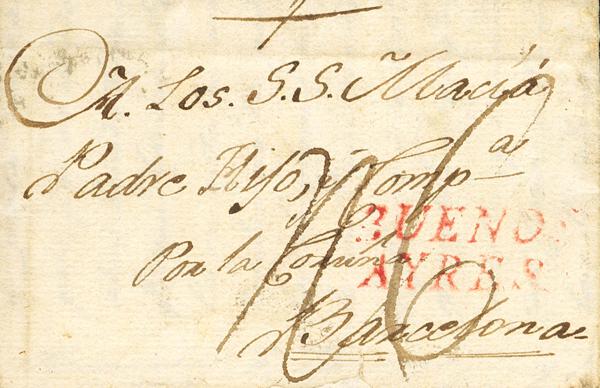 A. Los. S.S. Macià
Padre Hijo, y Compª
Por la Coruña
Barcelona
BUENOS
AYRES
16